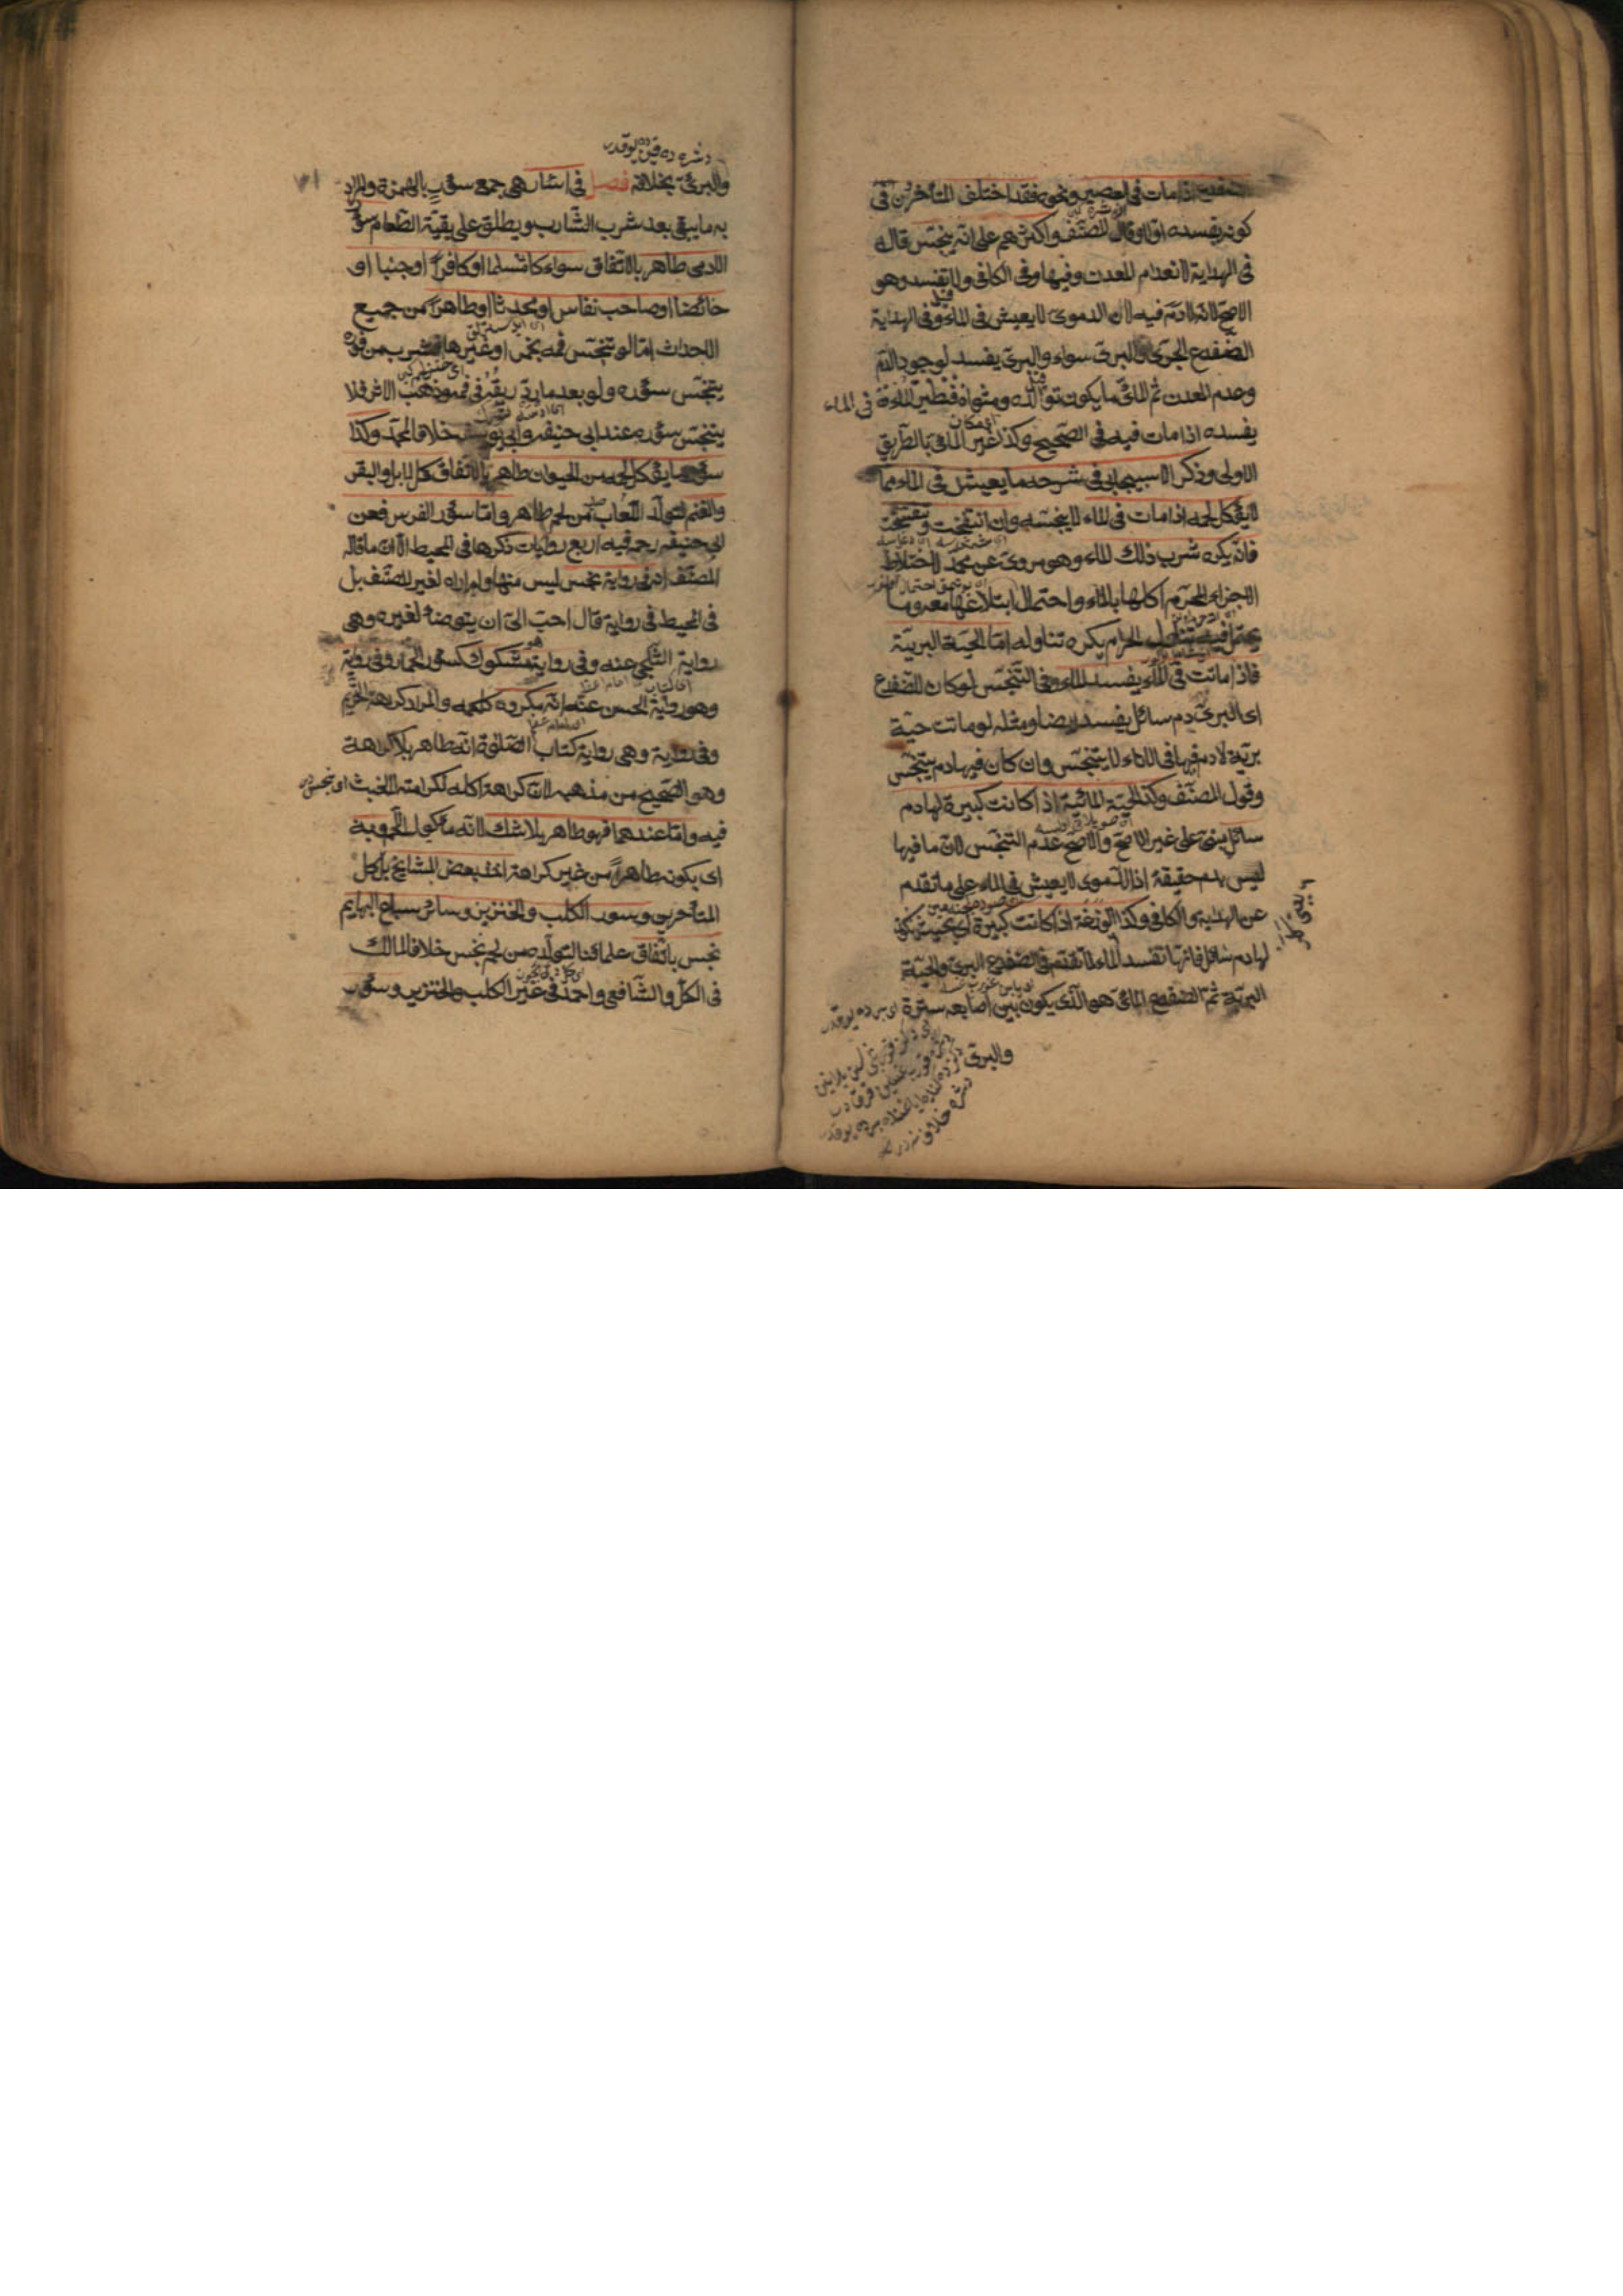 الضفدع اذا مات في العصير ونحوه فقد اختلف المتأخرون في
كونه يفسده اولا وقال المصنف واكثرهم على انه ينجس قاله
في الهداية لانعدام المعدن وفيها وفي الكافي ولا يفسد وهو
الاصح لانه لا دم فيه لان الدموي لا يعيش في الماء وفي الهداية
الضفدع البحري والبري سواء والبري يفسد لوجود الدم
وعدم المعدن ثم المائي ما يكون توالده ومثواه في الماء
يفسده اذا مات فيه في الصحيح وكذا غير المائي بالطريق
الاولى وذكر الاسبيجابي في شرحه ما يعيش في الماء مما
لا يؤكل لحمه اذا مات في الماء لا ينجسه وان انتفخت وتفتتت
فانه يكره شرب ذلك الماء وهو مروي عن محمد لاختلاط
الاجزاء المحرم اكلها بالماء واحتمال ابتلاعها معه وما
الحرام يكره تناوله اما الحية البرية
فاذا ماتت في الماء يفسد الماء وفي التنجس لو كان للضفدع
اى البري دم سائل يفسد ايضا ومثله لو ماتت حية
برية لا دم فيها في الاناء لا يتنجس وان كان فيها دم يتنجس
وقول المصنف وكذا الحية المائية اذا كانت كبيرة لها دم
سائل مبني على غير الاصح والاصح عدم التنجس لان ما فيها
ليس بدم حقيقة اذ الدموي لا يعيش في الماء على ما تقدم
عن الهداية والكافي وكذا الوزغة اذا كانت كبيرة اى بحيث يكون
لها دم سائل فانها تفسد الماء لما تقدم في الضفدع البري والحية
البرية ثم الضفدع المائي هو الذى يكون بين اصابعه سترة
والبري
والبري بخلافه فصل في اسئار هي جمع سؤر بالهمزة والمراد
به ما يبقى بعد شرب الشارب ويطلق على بقية الطعام سؤر
الادمى طاهر بالاتفاق سواء كان مسلما او كافرا او جنبا او
حائضا او صاحب نفاس او محدثا او طاهرا من جميع
الاحداث اما لو تنجس فمه بخمر او غيرها فشرب من فوره
يتنجس سؤره ولو بعد ما ردد ريقه في فمه وذهب الاثر فلا
يتنجس سؤره عند ابي حنيفه وابي يوسف خلافا لمحمد وكذا
سؤر ما يؤكل لحمه من الحيوان طاهر بالاتفاق كالابل والبقر
والغنم لتولد اللعاب من لحم طاهر واما سؤر الفرس فعن
ابي حنيفه رحمه فيه اربع روايات ذكرها في المحيط الا ان ما قاله
المصنف اذ في رواية نجس ليس منها ولم اره لغير المصنف بل
في المحيط في رواية قال احب الي ان يتوضأ لغيره وهى
رواية البلخي عنه وفي رواية مشكوك كسؤر الحمار وفي رواية
وهو رواية الحسن عنه انه مكروه كلحمه والمراد كراهة التحريم
وفي رواية وهى رواية كتاب الصلوة انه طاهر بلا كراهة
وهو الصحيح من مذهبه لان كراهة اكله لكرامته لا لخبث
فيه واما عندهما فهو طاهر بلا شك لانه مأكول اللحم وبه
اى بكونه طاهرا من غير كراهة اخذ بعض المشايخ بل كل
المتأخرين وسؤر الكلب والخنزير وسائر سباع البهايم
نجس باتفاق علمائنا لتولده من لحم نجس خلافا لمالك
في الكل والشافعي واحمد في غير الكلب والخنزير وسؤر